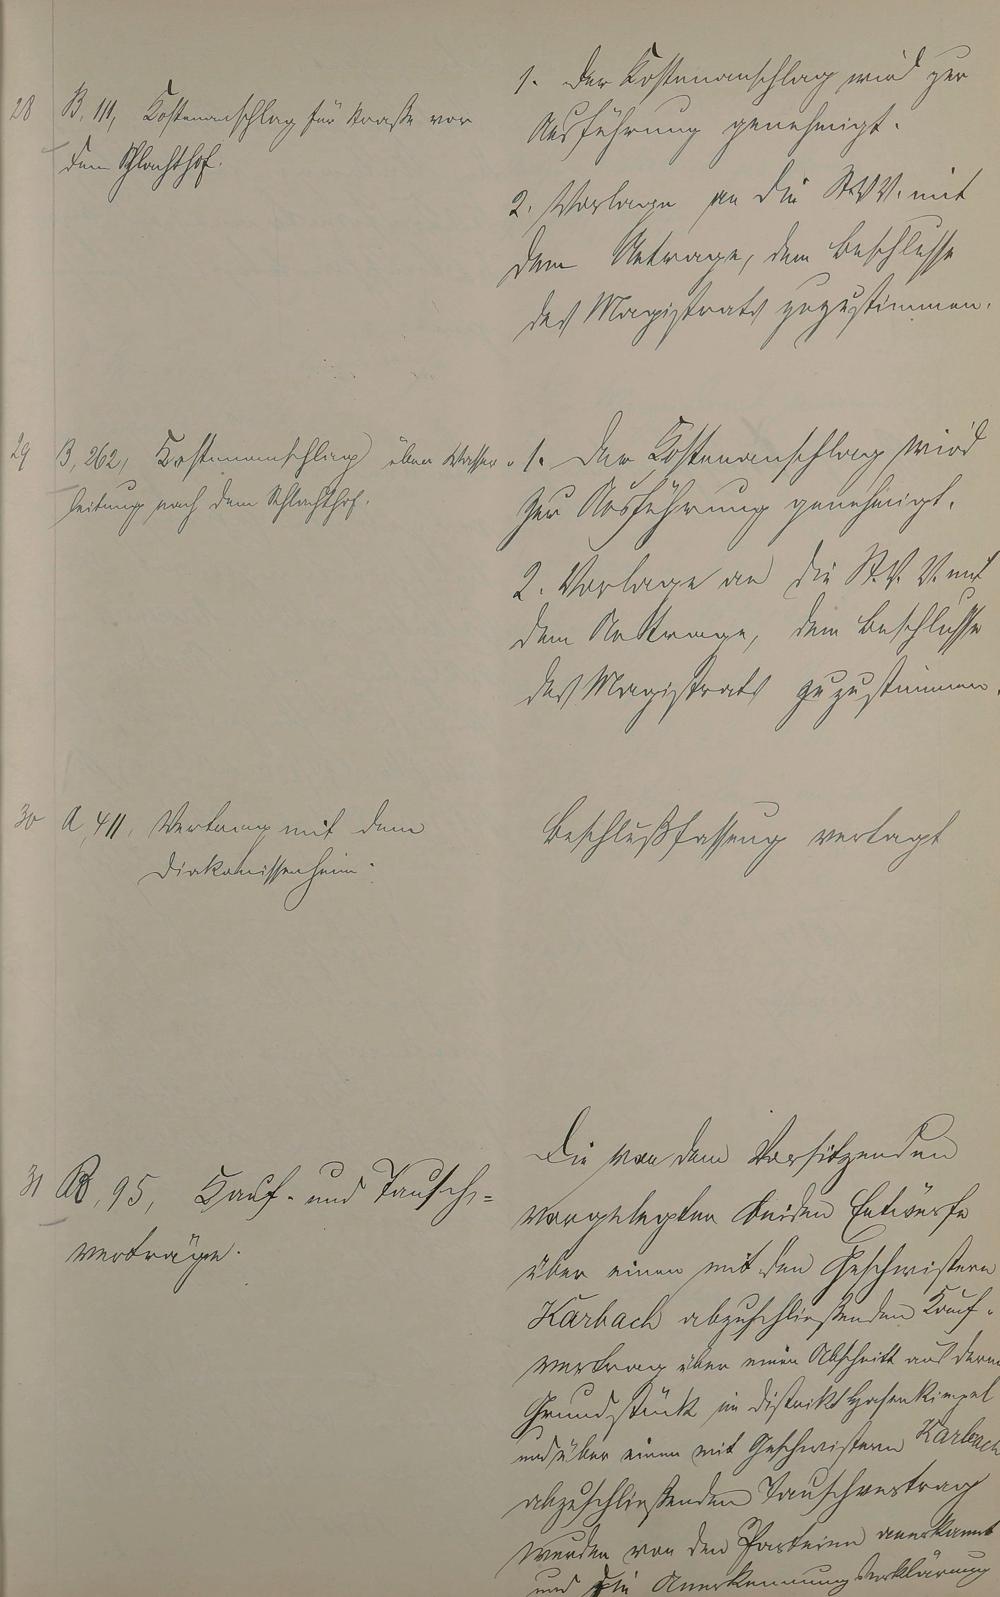 28 B, 111, Kostenanschlag für Straße vor
dem Schlachthof.
1. Der Kostenanschlag wird zur
Ausführung genehmigt.
2. Vorlage an die St.V.V. mit
dem Antrage, dem Beschlusse
des Magistrats zuzustimmen.
29 B, 262, Kostenanschlag über Wasser-
leitung nach dem Schlachthof.
1. Der Kostenanschlag wird
zur Ausführung genehmigt.
2. Vorlage an die St.V.V. mit
dem Antrage, dem Beschlusse
des Magistrats zuzustimmen.
30 A, 411, Vertrag mit dem
Diakonissenheim.
Beschlußfassung vertagt
31 B, 95, Kauf- und Tausch-
verträge.
Die von dem Vorsitzenden
vorgelegten beiden Entwürfe
über einen mit den Geschwistern
Karbach abzuschließenden Kauf-
vertrag über einen Abschnitt aus deren
Grundstück im Distrikt Hasenkimpel
und über einen mit Geschwistern Karbach
abzuschließenden Tauschvertrag
werden von den Parteien anerkannt
und die Anerkennungserklärung